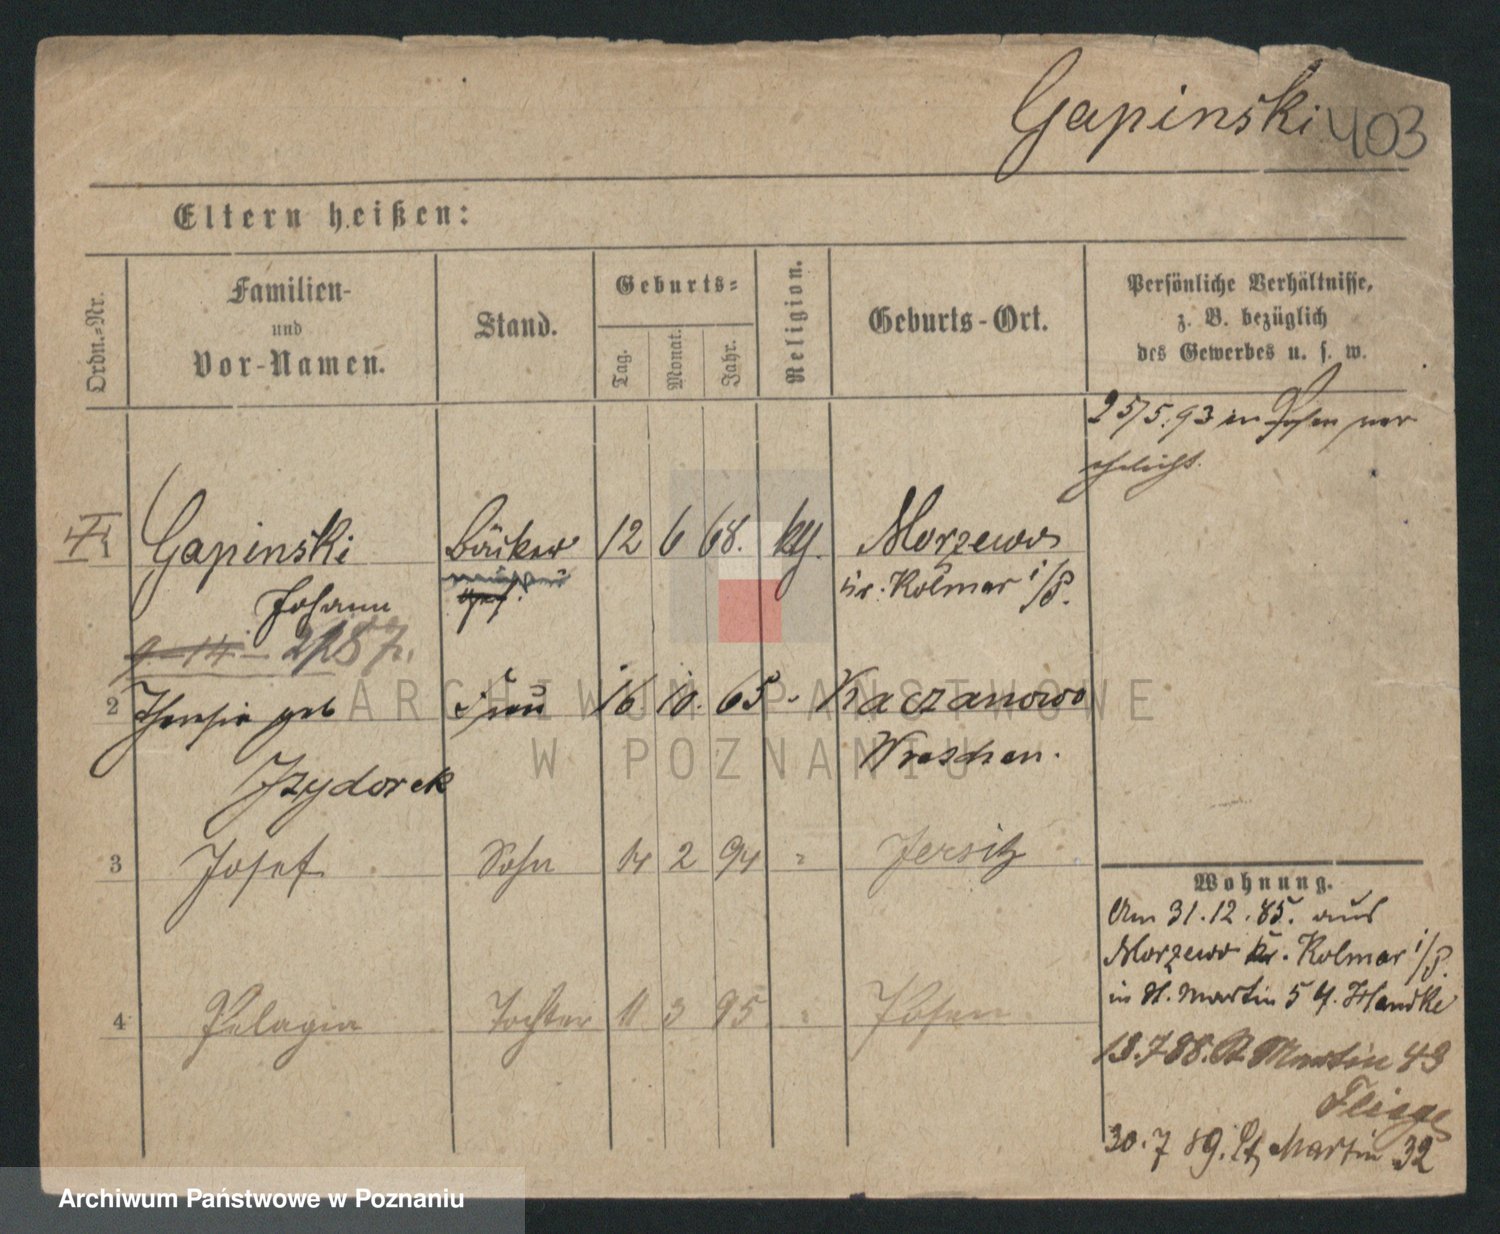 Gapinski 403
Eltern heißen:
Ordn.-Nr.
Familien-
und
Vor-Namen.
Stand.
Geburts-
Tag.
Monat.
Jahr.
Religion.
Geburts-Ort.
Persönliche Verhältnisse,
z. B. bezüglich
des Gewerbes u. s. w.
25/5.93 in Posen ver
ehelicht.
Gapinski Bäcker 12 6 68. kg. Morzewo
Johann Kr. Kolmar i/P.
9-14 2187.
2 Theresia geb Frau 16 10. 65 Kaczanowo
Izydorek Wreschen.
3 Josef Sohn 14 2 94 " Jersitz
4 Pelagia Tochter 11 3 95 " Posen
Wohnung.
Am 31.12.85. aus
Morzewo Kr. Kolmar i/P.
in St. Martin 54. Handke
13.7 88. St Martin 43
Fliege
30.7 89. St Martin 32
ARCHIWUM PAŃSTWOWE
W POZNANIU
Archiwum Państwowe w Poznaniu